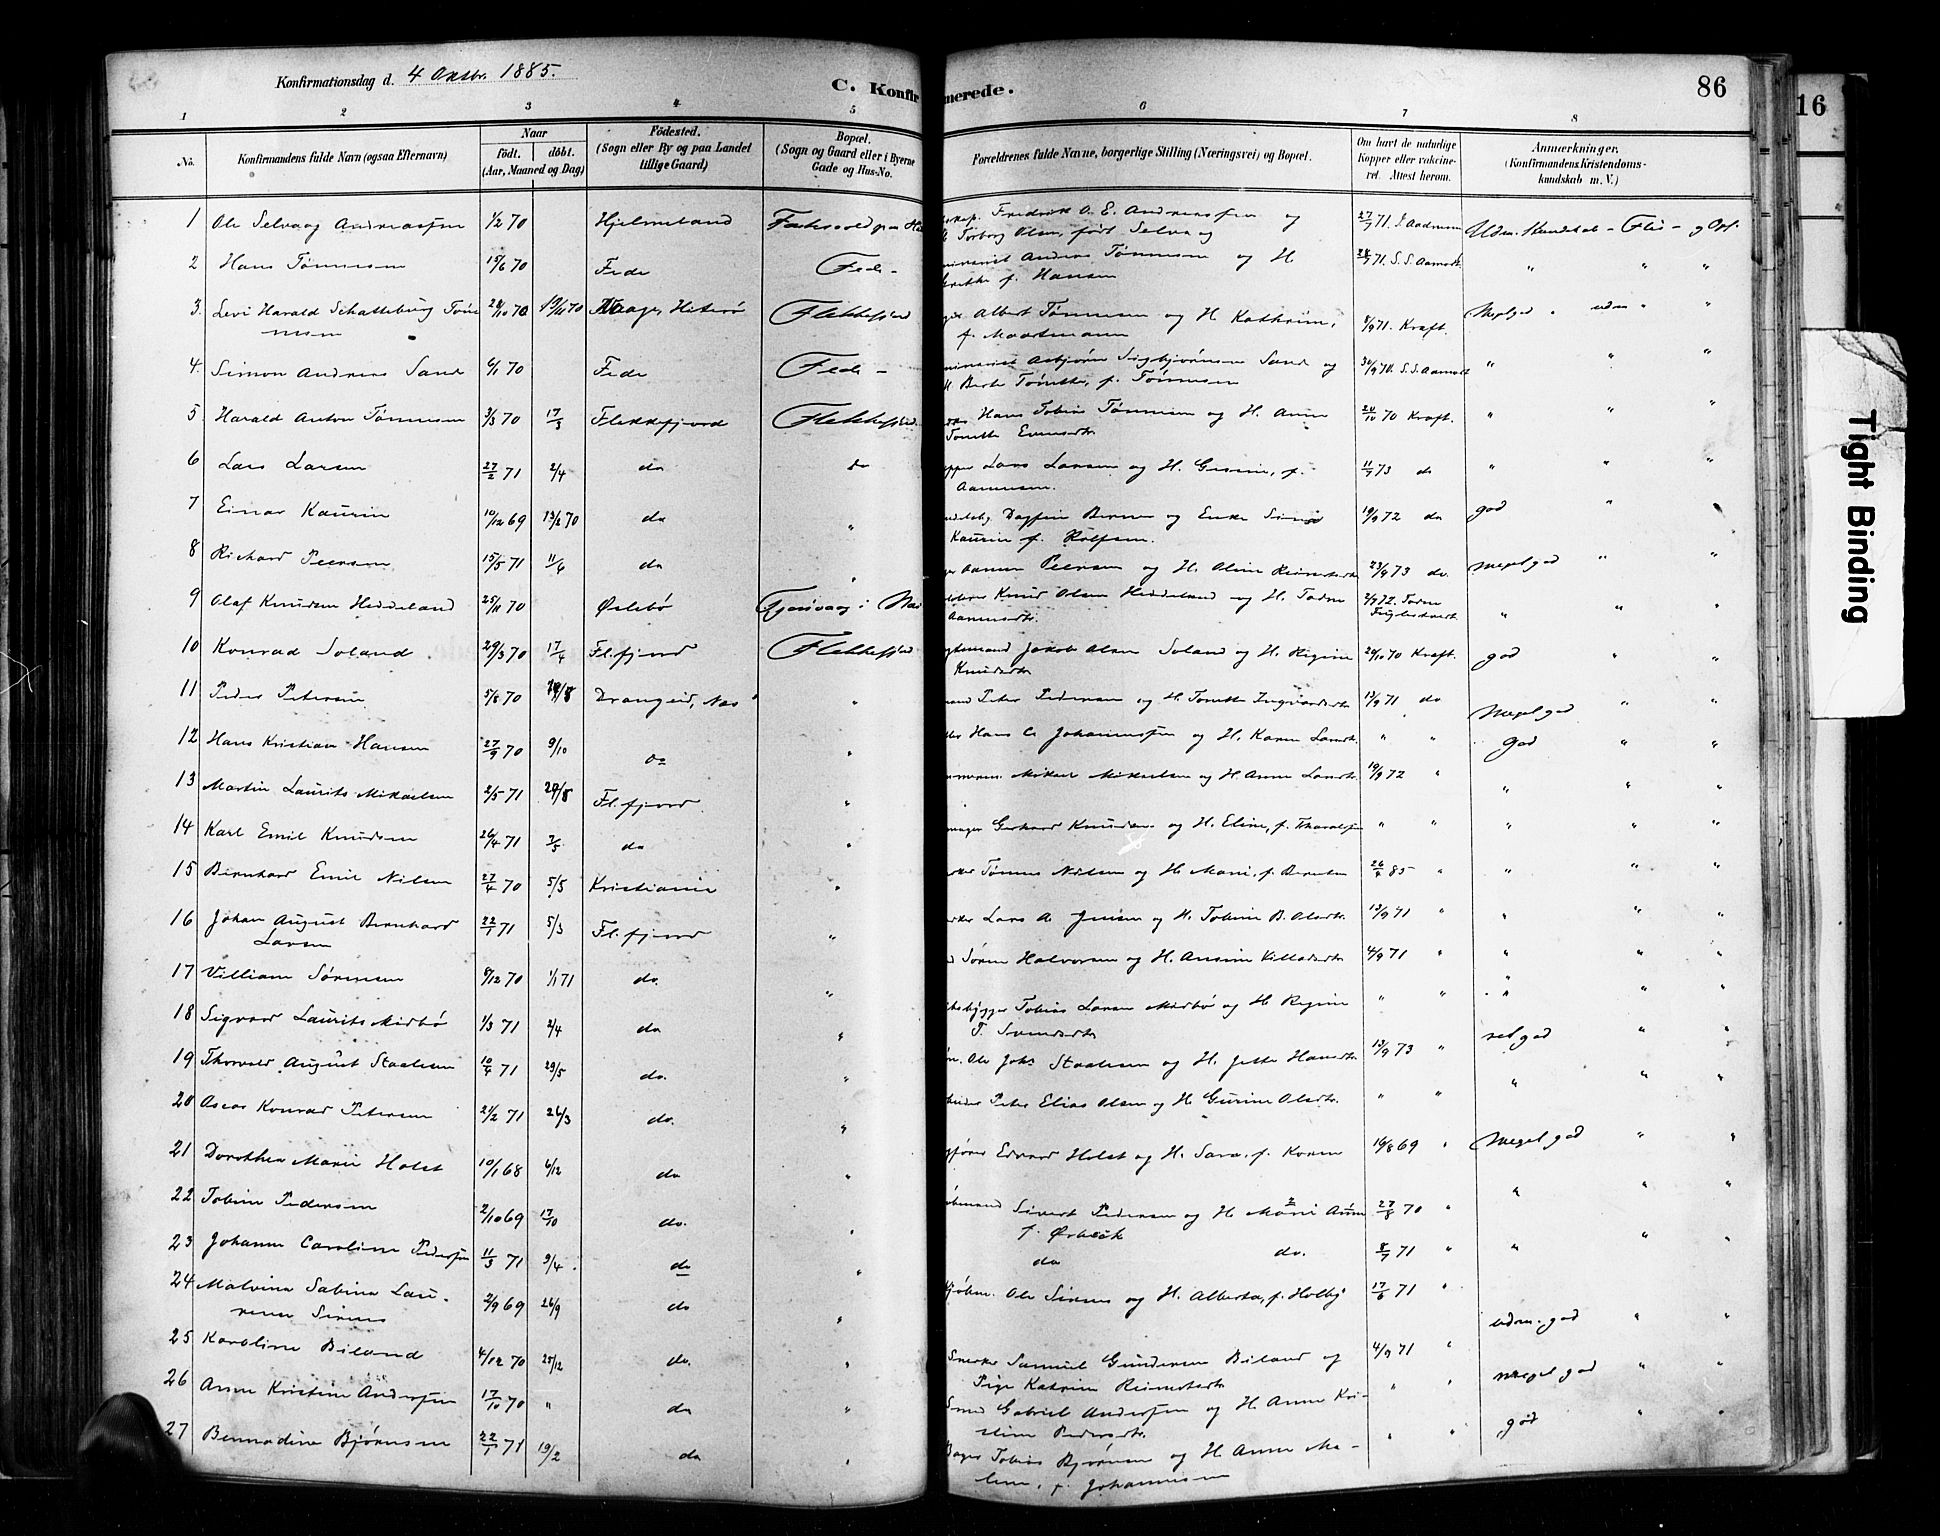 Konfirmationsdag d. 4 Oktbr. 1885.
C. Konfirmerede.
86
16
1 2 3 4 5 6 7 8
No.
Konfirmandens fulde Navn (ogsaa Efternavn)
Naar
født. døbt.
(Aar, Maaned og Dag)
Födested.
(Sogn eller By og paa Landet
tillige Gaard)
Bopæl.
(Sogn og Gaard eller i Byerne
Gade og Hus-No.
Forældrenes fulde Navne, borgerlige Stilling (Næringsvei) og Bopæl.
Om havt de naturlige
Kopper eller vakcine-
ret. Attest herom.
Anmærkninger.
(Konfirmandens Kristendoms-
kundskab m. V.)
1 Ole Selvaag Andreassen 1/2 70 Hjelmeland Fredrik O. E. Andreassen og 27/7 71. Udm. Kundskab - Flid - og Opf.
Torborg Olsen, født Selvaag
2 Hans Tønnesen 15/6 70 Fede Fede - Anders Tønnesen og H. 71. S. S. Aamodt " " "
f. Hansen
3. Levi Harald Schatteburg Tøn- 70 19/11 70 Hiterø Flekkefjord Albert Tønnesen og H. Kathrine, 8/9 71. Kraft. Megetgod udm "
nesen f. Maartmann
4. Simon Andreas Sand 6/1 70 Fede Fede - Asbjørn Sigbjørnsen Sand og 70. S. S. Aamodt " " "
H. Berte Tønette, f. Tønnesen
5. Harald Anton Tønnesen 3/3 70 17/3 Flekkefjord Flekkefjord Hans Tobias Tønnesen og H. Anne 20/10 70 Kraft. " " "
Tonette Evensdtr
6 Lars Larsen 27/2 71 2/4 do do Lars Larsen og H. Gesine, f. 11/7 73 do " " "
Aanensen.
7 Einar Kaurin 10/12 69 13/6 70 do " Dagfin Berner og Enke 19/9 72 do god " "
Kaurin f. Rolfsen.
8 Richard Peersen 15/5 71 11/6 do " Aanen Peersen og H. Aline Reinertsdtr 23/9 73 do. megetgod " "
9 Olaf Knudsen Heddeland 25/11 70 Øslebø Knud Olsen Heddeland og H. Tadne 2/9 72. " " "
Aanensdtr.
10 Konrad Soland. 29/3 70 17/4 Fl.fjord Flekkefjord Jakob Olsen Soland og H. Regine 20/10 70 Kraft. god " "
Knudsdtr
11 Peder Petersen 5/6 70 Drangeid, Næs " Peter Pedersen og H. Tonette Ingvardsdtr 13/9 71 do Megetgod " "
12 Hans Kristian Hansen 27/9 70 9/10 do " Hans C. Johannessen og H. Karen Larsdtr. " " God " "
13 Martin Laurits Mikaelsen 2/5 71 29/8 Fl.fjord " Mikael Mikaelsen og H. Anne Larsdtr 19/9 72 " " " "
14 Karl Emil Knudsen 26/4 71 do " Gerhard Knudsen og H. Eline, f. " " " " "
15 Bernhard Emil Nilsen 27/4 70 5/5 Kristiania " Tønnes Nilsen og H. Marie, f. Berntsen 26/4 85 " " " "
16 Johan August Bernhard 22/1 71 5/3 Fl.fjord " Lars A. Jensen og H. Tobine B. Olsdtr. 13/9 71 " " " "
Larsen
17 Villiam Sørensen 8/12 70 1/1 71 do. " Søren Halvorsen og H. Ansine Villadsdtr 4/9 71 " " " "
18 Sigvard Laurits Midbø 1/3 71 2/4 do " Tobias Larsen Midbø og H. Regine " " " " "
T. Svendsdtr
19 Thorvald August Staalesen 10/4 71 29/5 do. " Ole Johs Staalesen og H. Jette Hansdtr 13/9 73 " retgod " "
20 Oscar Konrad Petersen 21/2 71 26/3 do. " Peter Elias Olsen og H. Gurine Olsdtr. " " " " "
21 Dorothea Marie Holst 10/1 68 6/12 do " Edvard Holst og H. Sara, f. Koren 16/8 69 " Meget god " "
22 Tobine Pedersen 2/10 69 17/10 do. " Sivert Pedersen og H. Marie Anne 27/8 70 " " "
f. Ørbæk
23 Johanne Caroline Pedersen 11/3 71 9/4 do " do do. 8/7 71 " " " "
24 Malvine Sabine Lau- 2/9 69 26/9 do " Ole Sirens og H. Alberta, f. Holby 17/6 71 " udm. god " "
rense Sirens
25 Karoline Biland 4/12 70 25/12 do. " Samuel Gundersen Biland og 4/9 71 " meget god " "
Pige Katrine Reinertsdtr
26 Anne Kristine Andersen 17/10 70 " do " Smed Gabriel Andersen og H. Anne Kri- " " god " "
stine Pedersdtr.
27 Bernadine Bjørnsen 22/1 71 19/2 do " Bager Tobias Bjørnsen og H. Anne Ma- " "
lene, f. Johannesen
Tight Binding